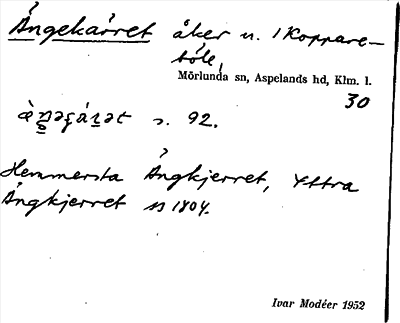 Ångekärret åker n. 1 Koppare-
böle,
Mörlunda sn, Aspelands hd, Klm. l.
30
s. 92.
Hemmersta Ångkjerret, Yttra
Ångkjerret 1804.
Ivar Modéer 1952